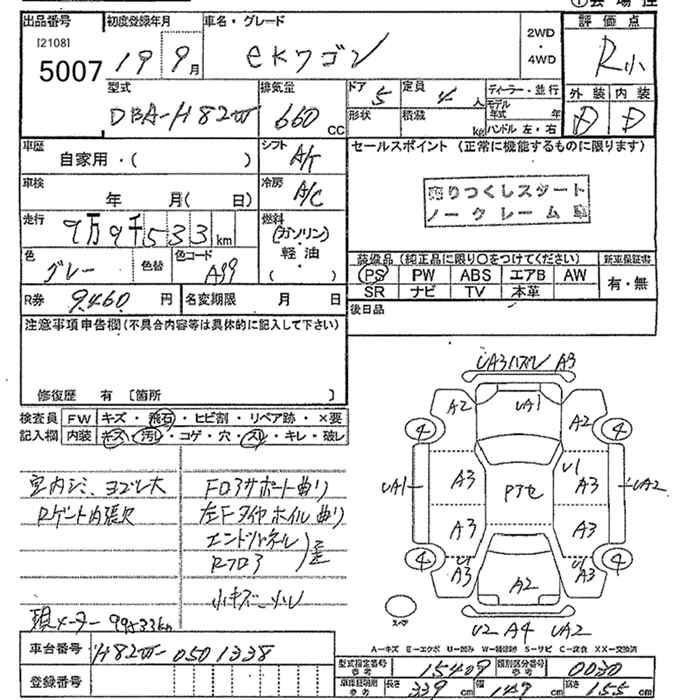 ①会場控
出品番号 初度登録年月 車名・グレード 2WD・4WD 評価点
[2108]
5007 19 9月 ekワゴン R小
型式 排気量 ドア 定員 ディーラー・並行 外装 内装
DBA-H82W 660cc 5 4人 D D
形状 積載 kg モデル年式 年 ハンドル 左・右
車歴 シフト セールスポイント (正常に機能するものに限ります)
自家用・( ) A/T
売りつくしスタート
ノークレーム
車検 冷房
年 月( 日) A/C
走行 燃料
9万9千533km (ガソリン)・軽油・( )
色 色替 色コード 装備品 (純正品に限り○をつけてください) 新車保証書
グレー A99 PS PW ABS エアB AW 有・無
SR ナビ TV 本革
R券 9460円 名変期限 月 日 後日品
注意事項申告欄(不具合内容等は具体的に記入して下さい)
修復歴 有 〔箇所 〕
検査員 FW キズ・飛石・ヒビ割・リペア跡・×要
記入欄 内装 キズ・汚レ・コゲ・穴・スレ・キレ・破レ
室内シミ、ヨゴレ大 Fコアサポート曲り
Rゲート内張欠 左Fタイヤホイル曲り
エンドパネル
Rフロア 歪
小キズ凹小
現メーター 99533km
UA3 ハズレ A3
A2 UA1 A2
4 4
UA1 A3 Pアセ U1 A3 UA2
A3 A3
4 4
U1 A3 A2 U1 A3
スペア
U2 A4 UA2
A-キズ E-エクボ U-凹み W-補修跡 S-サビ C-腐食 XX-交換済
車台番号 H82W-0501338
登録番号
型式指定番号 参考 15409 類別区分番号 参考 0030
車検証期用 参考 長さ 339cm 幅 147cm 高さ 155cm